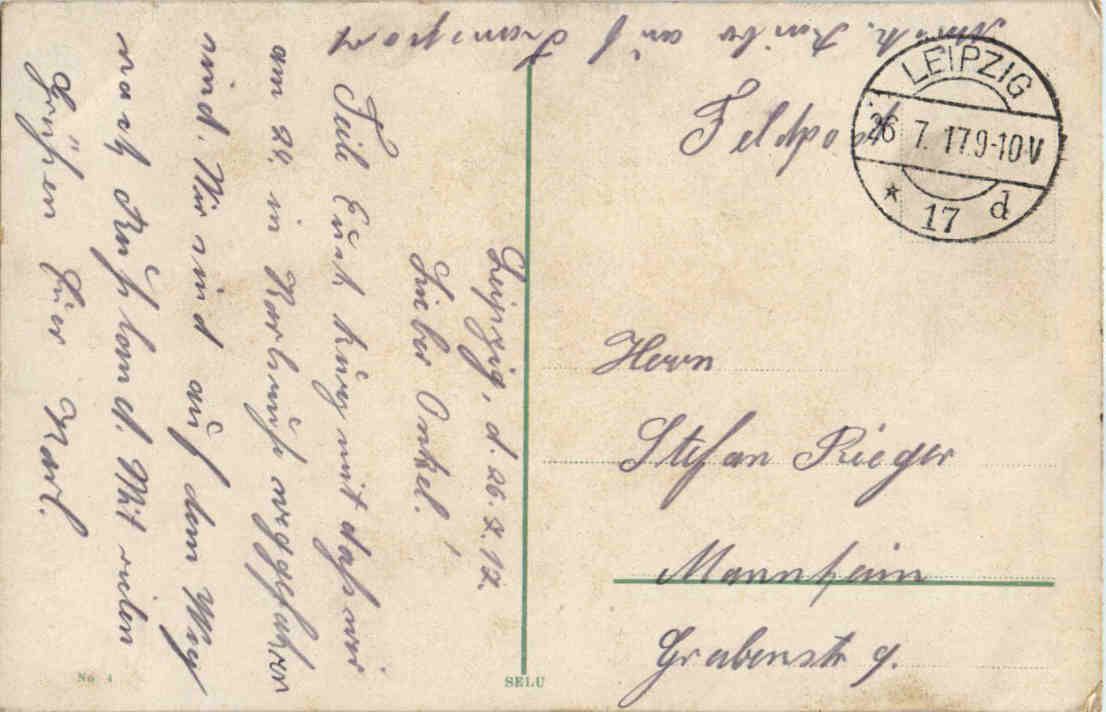 Feldpost
LEIPZIG
26 7. 17.9-10V
* 17 d
Herrn
Stefan Rieger
Mannheim
Grabenstr 9.
Leipzig, d. 26.7.17.
Lieber Onkel!
Teile Euch kurz mit daß wir
am 24. in Karlsruhe weggefahren
sind. Wir sind auf dem Weg
nach Rußland. Mit vielen
Grüßen Euer Karl.
auf Transport
No 4
SELU